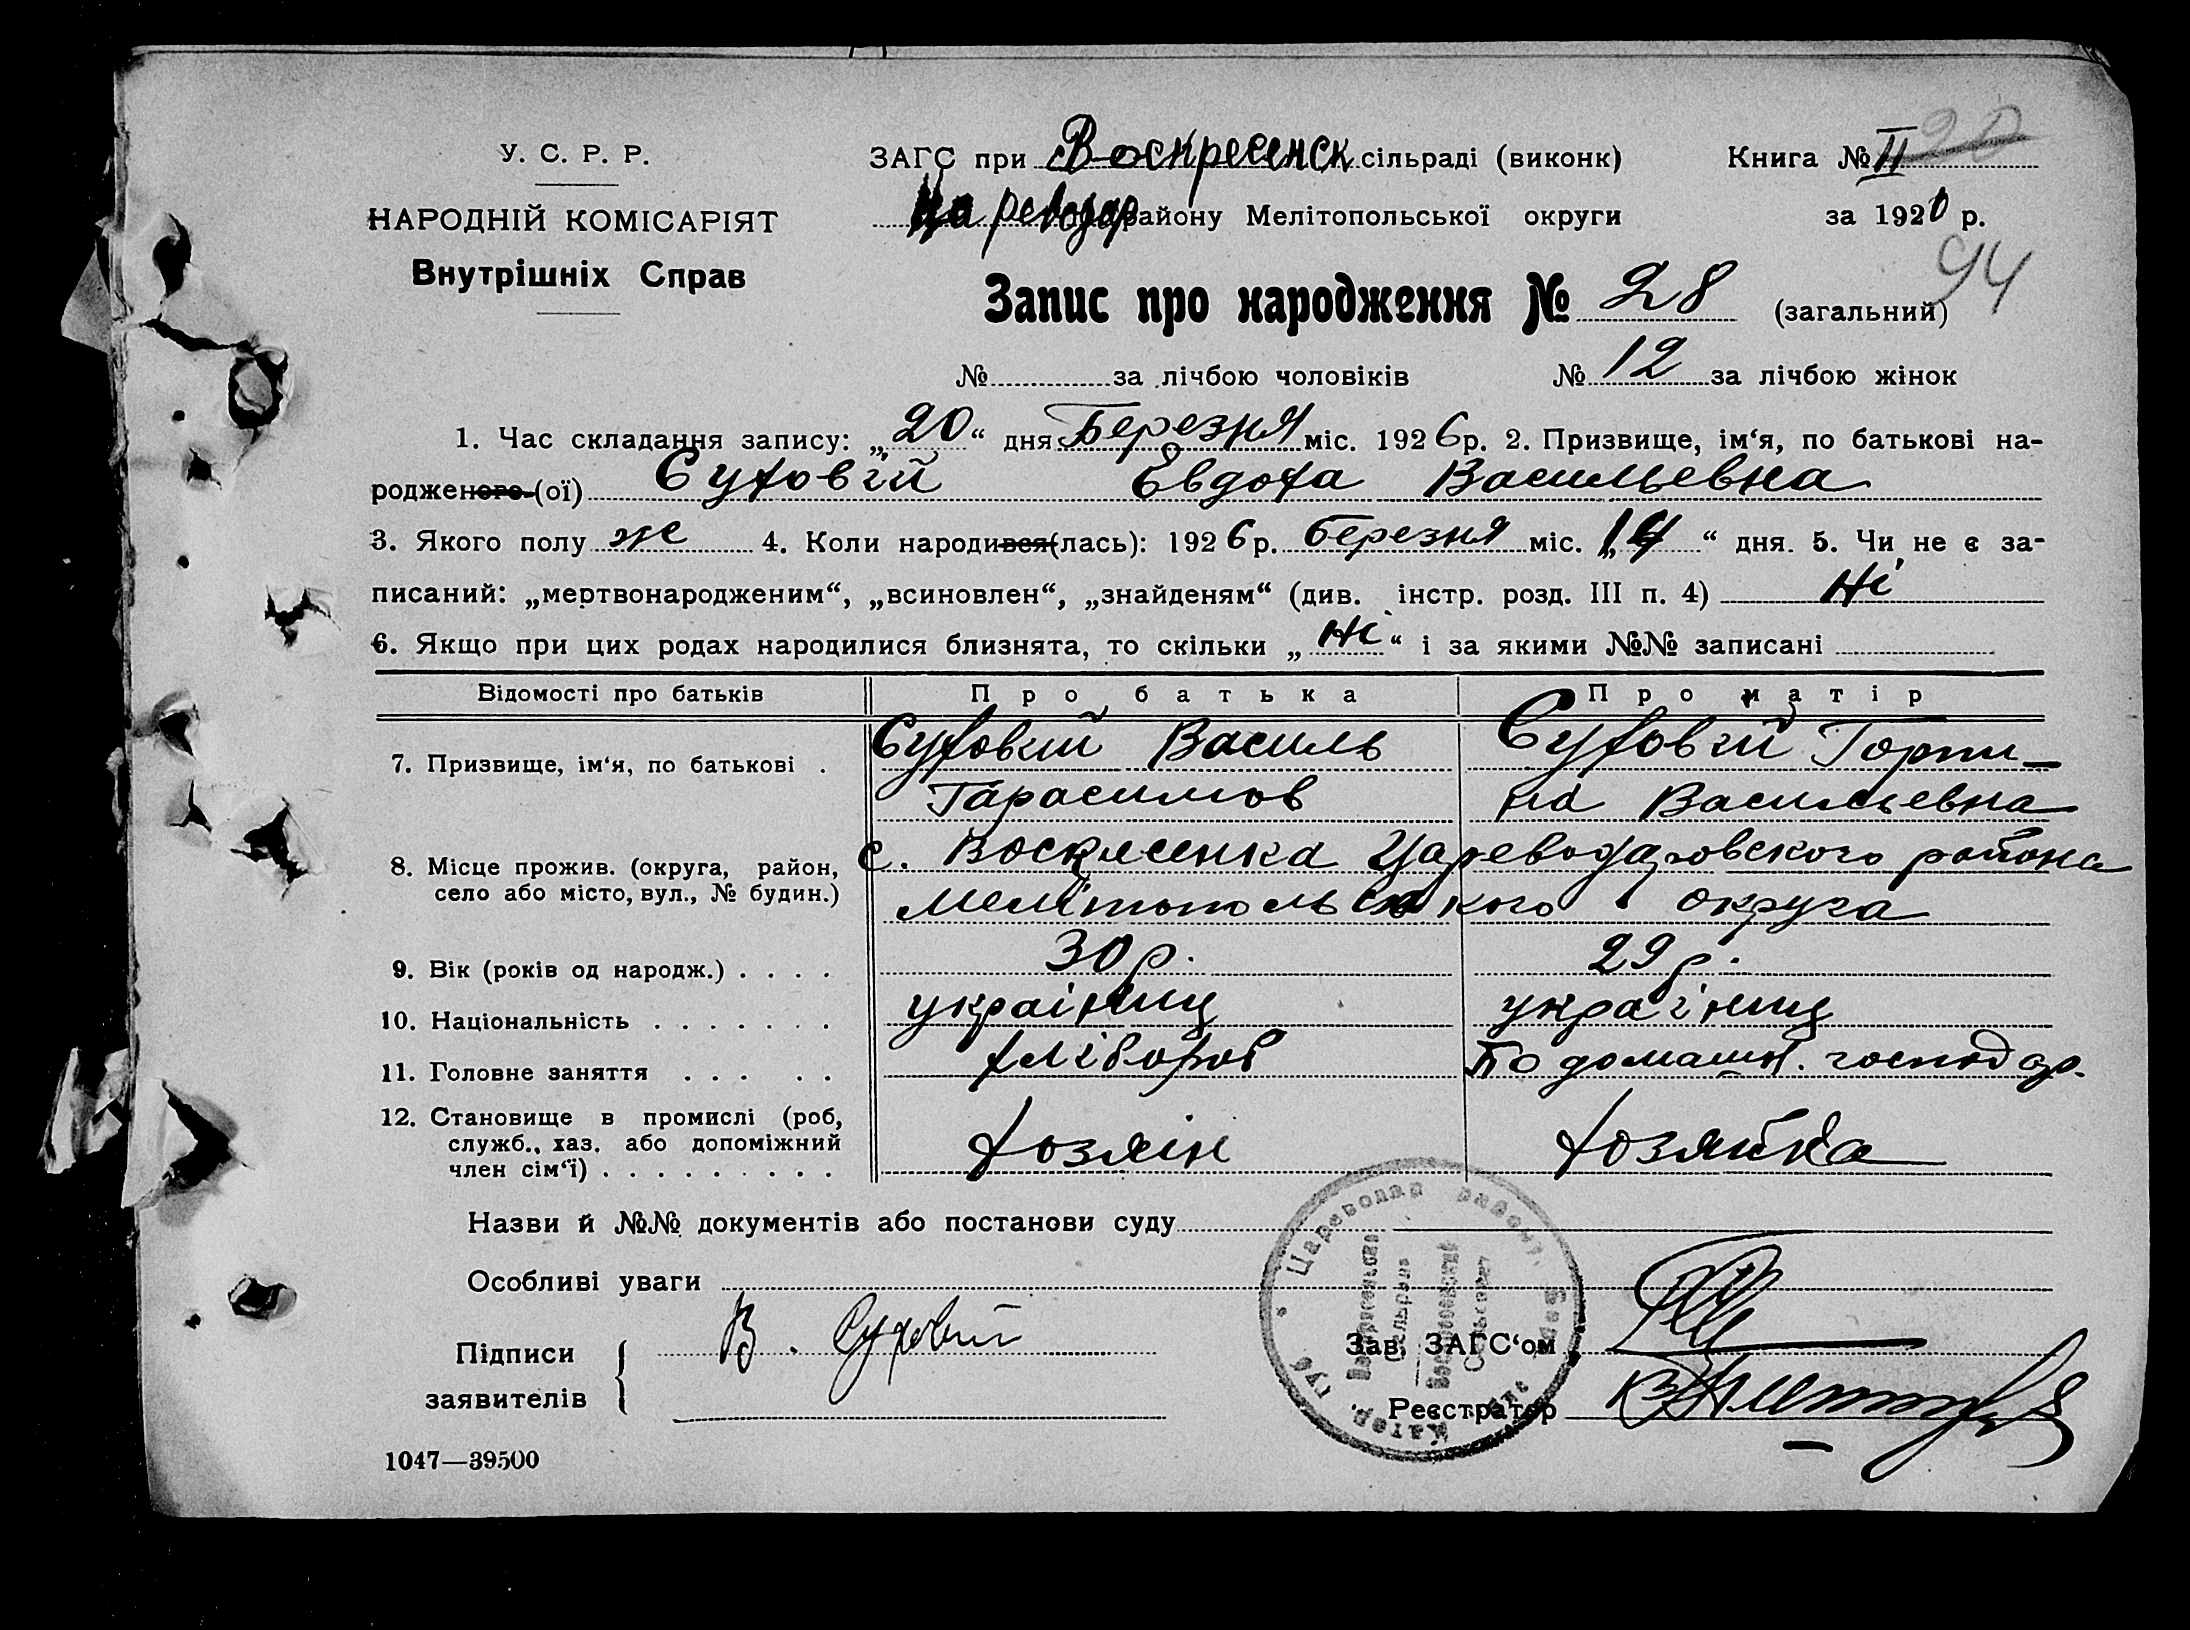 У. С. Р. Р.
НАРОДНІЙ КОМІСАРІЯТ
Внутрішніх Справ
ЗАГС при Воскресенск сільраді (виконк)
Цареводар району Мелітопольської округи
Книга № II 20
за 1926 р.
94
Запис про народження № 28 (загальний)
№ за лічбою чоловіків № 12 за лічбою жінок
1. Час складання запису: „20“ дня Березня міс. 1926 р. 2. Призвище, ім‘я, по батькові на-
родженого (ої) Суховій Евдоха Васильевна
3. Якого полу ж 4. Коли народився (лась): 1926 р. березня міс. „14“ дня. 5. Чи не є за-
писаний: „мертвонародженим“, „всиновлен“, „знайденям“ (див. інстр. розд. III п. 4) Ні
6. Якщо при цих родах народилися близнята, то скільки „Ні“ і за якими №№ записані
Відомості про батьків Про батька Про матір
7. Призвище, ім‘я, по батькові . Суховий Василь Суховій Горпи-
Гарасимов на Васильевна
8. Місце прожив. (округа, район, с. Воскресенка Цареводаровского района
село або місто, вул., № будин.) Мелітопольского округа
9. Вік (років од народж.) . . . . 30 р. 29 р.
10. Національність . . . . . . . українец україниц
11. Головне заняття . . . . . хлібороб По домашн. господар.
12. Становище в промислі (роб,
служб., хаз. або допоміжний хозяін хозяйка
член сім‘ї) . . . . . . . . .
Назви й №№ документів або постанови суду
Особливі уваги
Підписи
заявителів
В. Суховий
Зав. ЗАГС‘ом
Реєстратор
Цареводар район
1047—39500